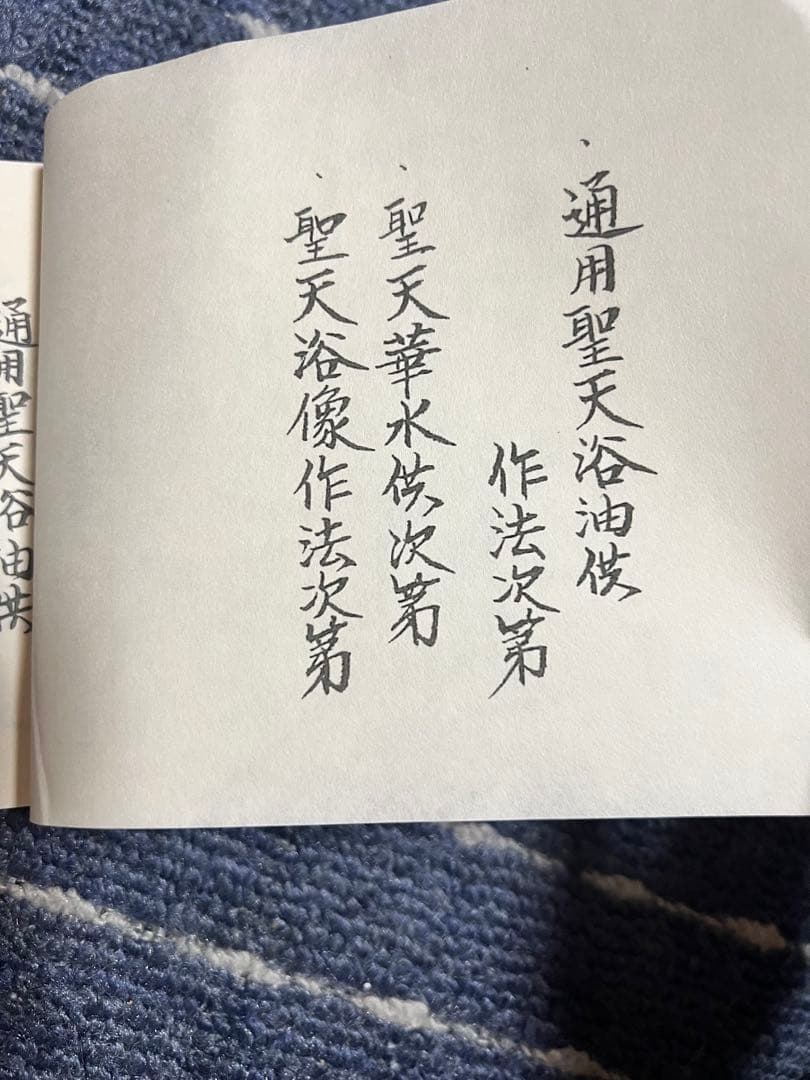 、通用聖天浴油供
作法次第
、聖天華水供次第
、聖天浴像作法次第
通用聖天浴油供